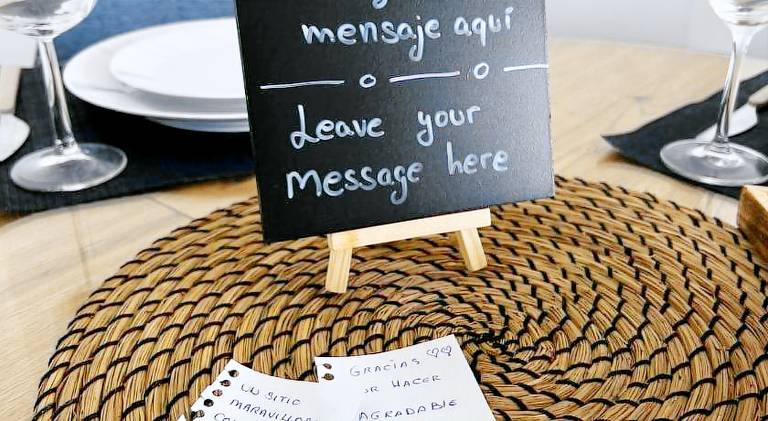 mensaje aquí
Leave your
Message here
UN SITIO
GRACIAS ♡♡
HACER
AGRADABLE